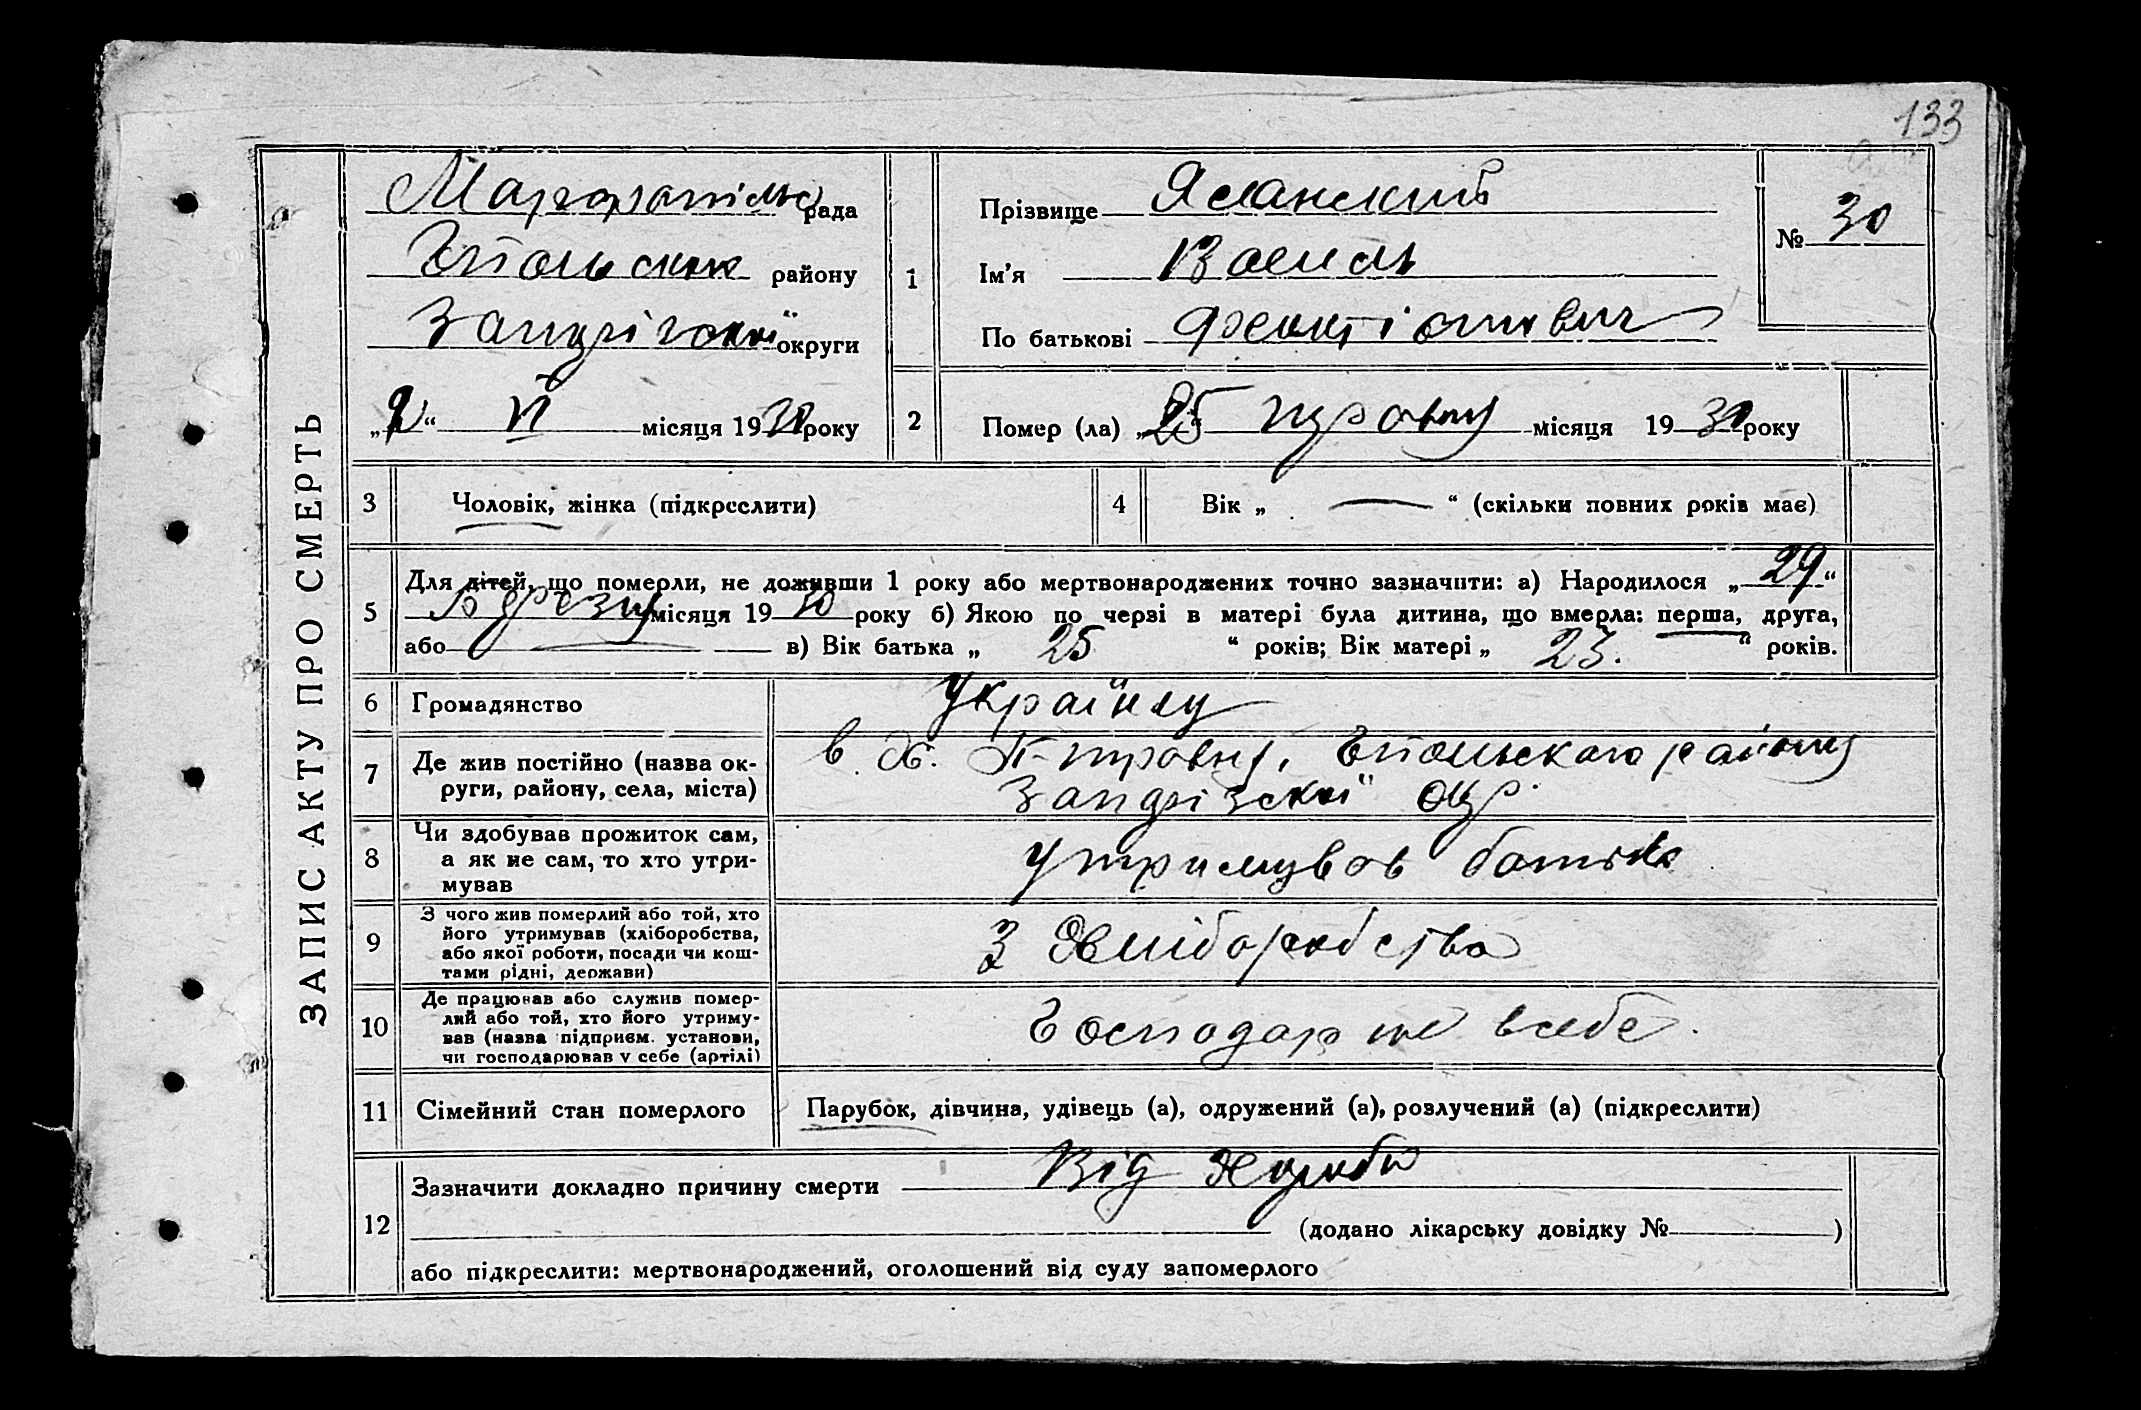 133
ЗАПИС АКТУ ПРО СМЕРТЬ
рада
району
округи
„ “ VI місяця 1930 року
1
Прізвище
Ім’я Василь
По батькові
№ 30
2
Помер (ла) „25“ травня місяця 1930 року
3 Чоловік, жінка (підкреслити)
4 Вік „ — “ (скільки повних років має)
5
Для дітей, що померли, не доживши 1 року або мертвонароджених точно зазначити: а) Народилося „29“
Березня місяця 1930 року б) Якою по черзі в матері була дитина, що вмерла: перша, друга,
або — в) Вік батька „ 25 “ років; Вік матері „ 23. “ років.
6 Громадянство
7 Де жив постійно (назва ок-
руги, району, села, міста)
в х. району
окр.
8 Чи здобував прожиток сам,
а як не сам, то хто утри-
мував
утримував батько
9 З чого жив померлий або той, хто
його утримував (хліборобства,
або якої роботи, посади чи кош-
тами рідні, держави)
З хліборобства
10 Де працював або служив помер-
лий або той, хто його утриму-
вав (назва підприєм. установи,
чи господарював у себе (артілі)
в себе.
11 Сімейний стан померлого
Парубок, дівчина, удівець (а), одружений (а), розлучений (а) (підкреслити)
12
Зазначити докладно причину смерти Від хороби
(додано лікарську довідку № )
або підкреслити: мертвонароджений, оголошений від суду запомерлого